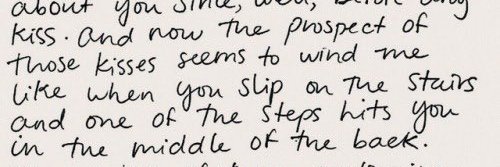 about you since, well,
kiss. And now the prospect of
those kisses seems to wind me
like when you slip on the stairs
and one of the steps hits you
in the middle of the back.